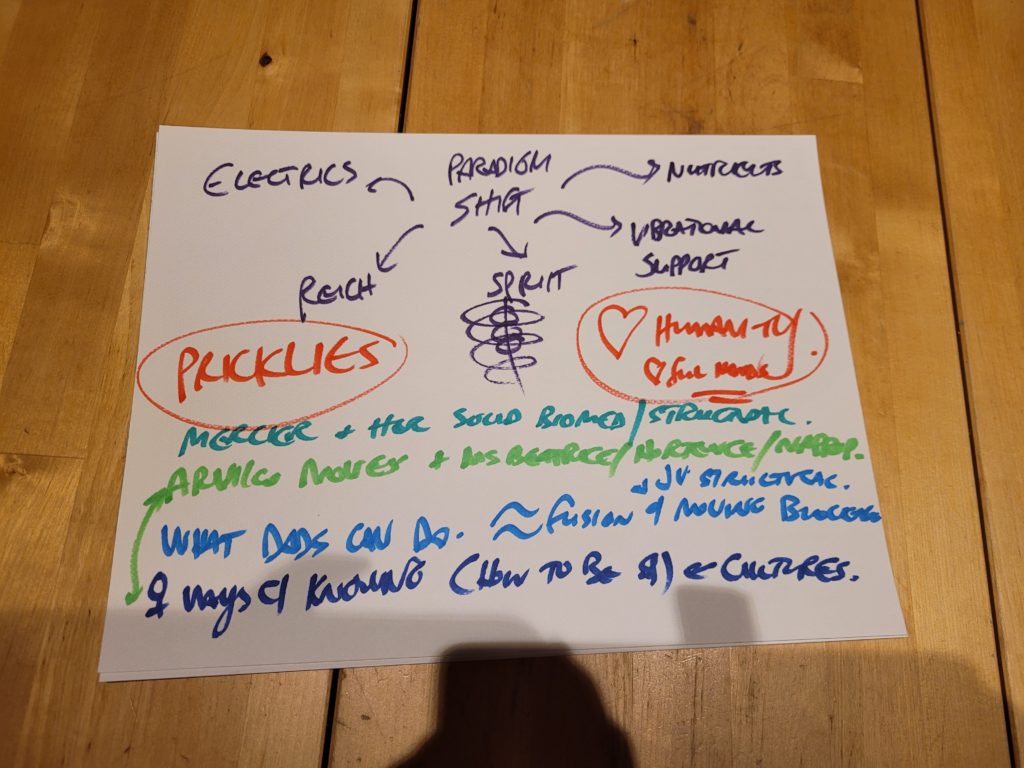 ELECTRICS
PARADIGM
SHIFT
NUTRIENTS
VIBRATIONAL
SUPPORT
REICH
SPIRIT
PRICKLIES
HUMANITY
MERCIER + HER SOLID BIOMED/STRUCTURAL.
+ MS BEATRICE/HORTENCE/
STRUCTURAL.
WHAT DADS CAN DO. ≈ FUSION & MOVING BLOCKAGE
♀ WAYS OF KNOWING (HOW TO BE ) ← CULTURES.